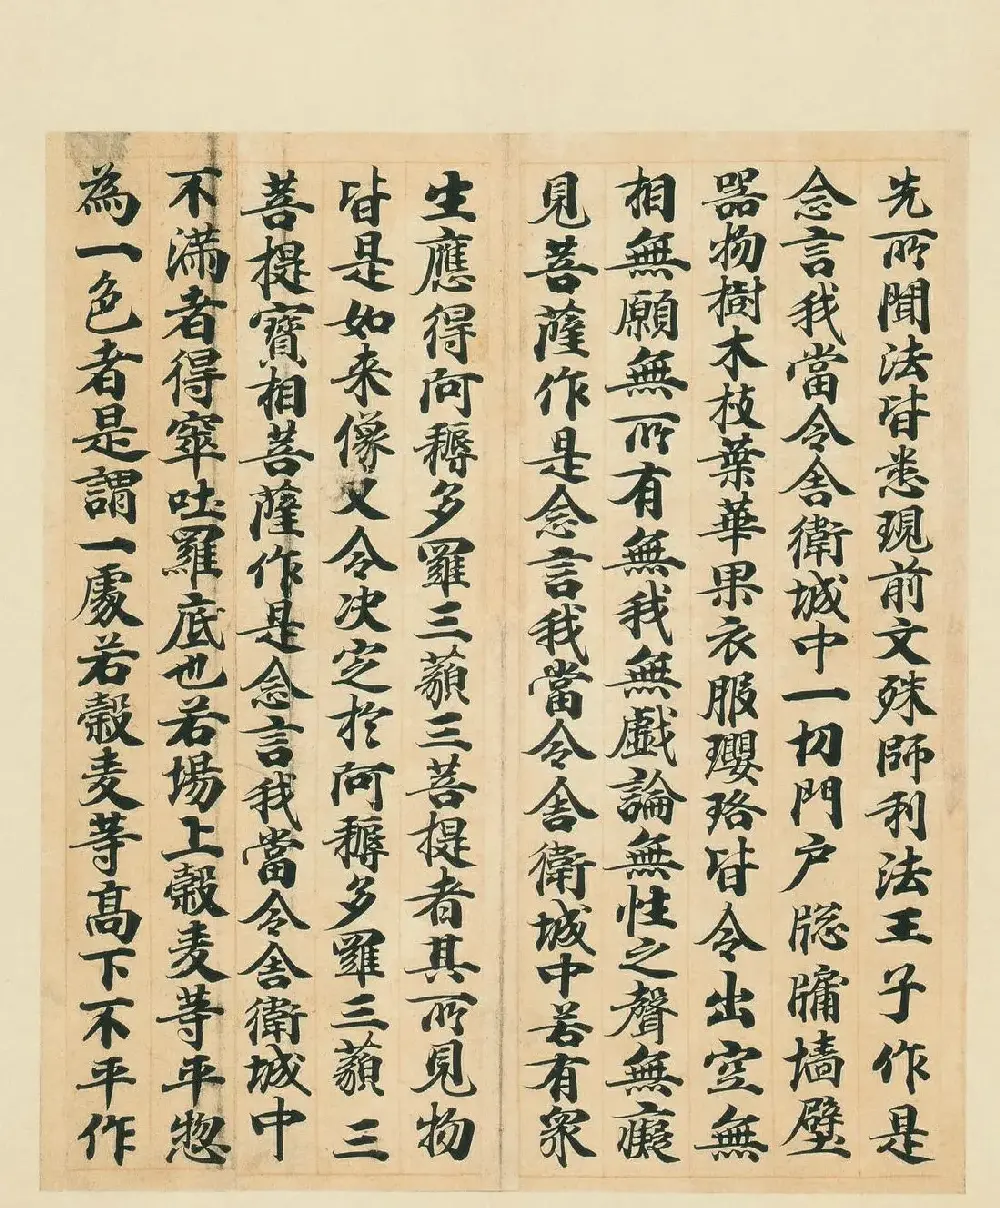 先所聞法皆悉現前文殊師利法王子作是
念言我當令舍衛城中一切門户牎牖墻壁
器物樹木枝葉華果衣服瓔珞皆令出空無
相無願無所有無我無戲論無性之聲無癡
見菩薩作是念言我當令舍衛城中若有衆
生應得阿耨多羅三藐三菩提者其所見物
皆是如来像又令决定於阿耨多羅三藐三
菩提寶相菩薩作是念言我當令舍衛城中
不滿者得窣吐羅底也若場上穀麦等平惣
為一色者是謂一處若穀麦等高下不平作